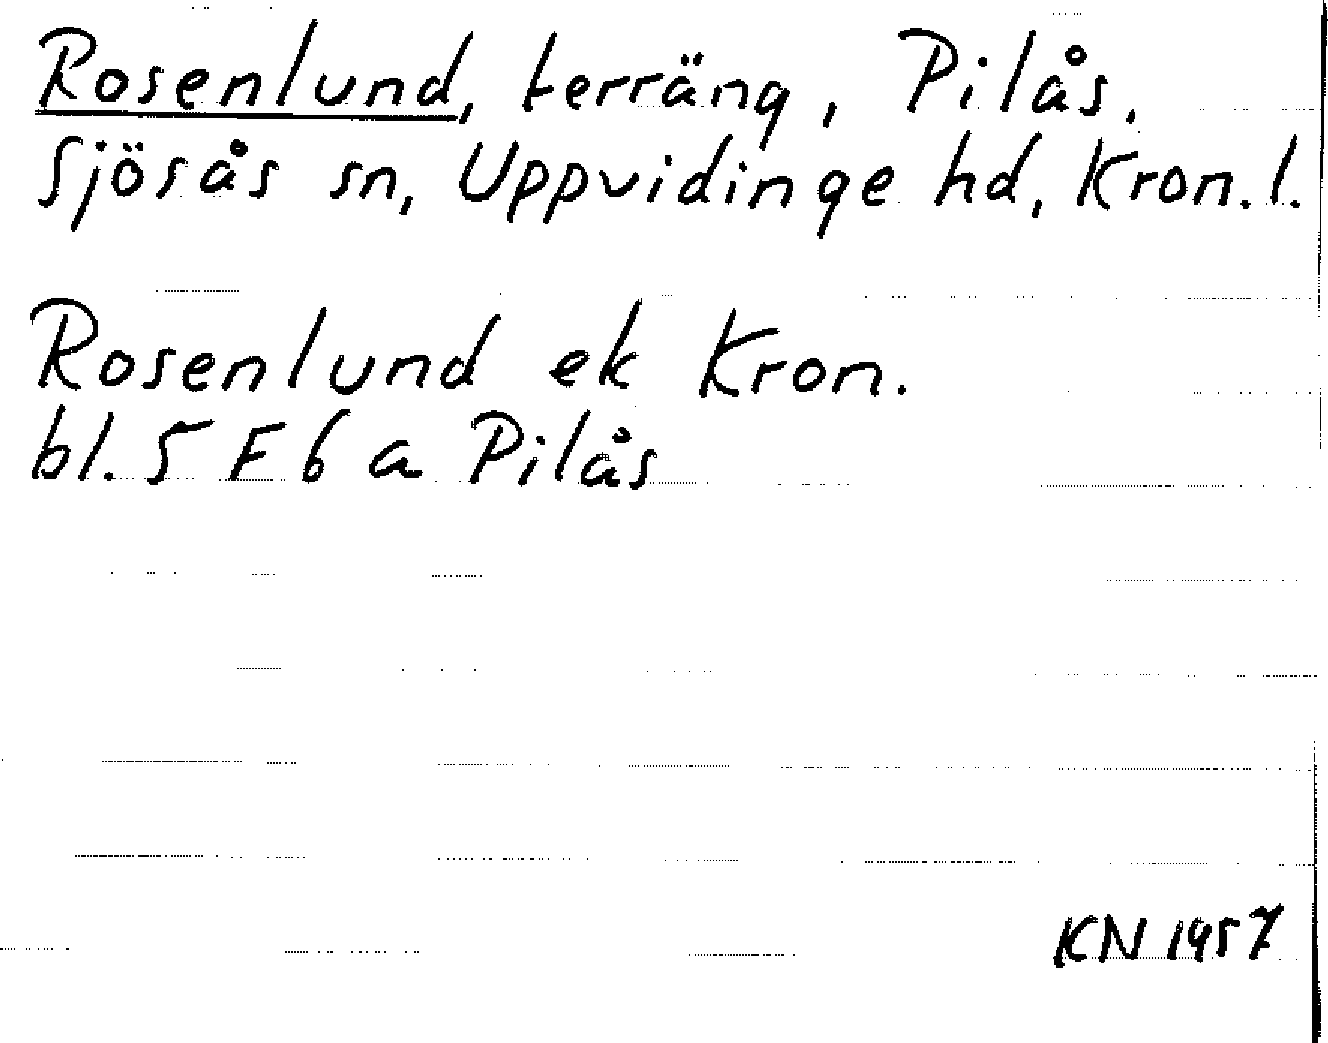 Rosenlund, terräng, Pilås.
Sjösås sn, Uppvidinge hd, Kron. l.
Rosenlund ek Kron.
bl. 5 F 6 a Pilås
KN 1957